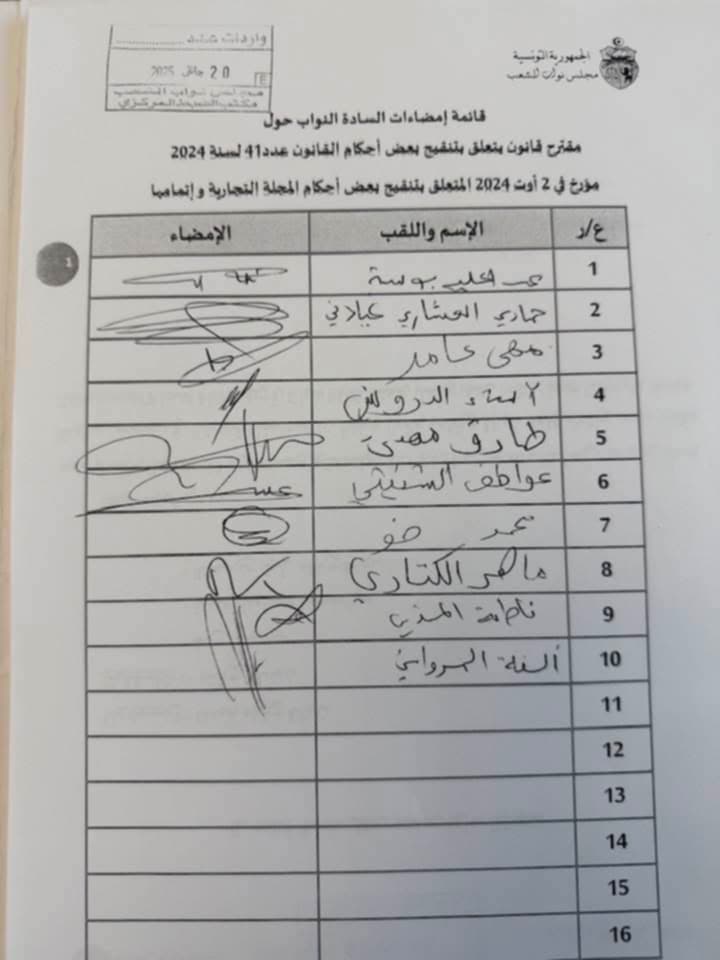 واردات عدد ..............
20 جانفي 2025
مجلس نواب الشعب
مكتب الضبط المركزي
الجمهورية التونسية
مجلس نواب الشعب
قائمة إمضاءات السادة النواب حول
مقترح قانون يتعلق بتنقيح بعض أحكام القانون عدد41 لسنة 2024
مؤرخ في 2 أوت 2024 المتعلق بتنقيح بعض أحكام المجلة التجارية وإتمامها
ع/ر الإسم واللقب الإمضاء
1 بوسمة
2 حمادي غيلاني
3 مهى عامر
4 الدرويش
5 طارق مهدي
6 عواطف الشنيتي
7 محمد ضو
8 ماهر الكتاري
9 فاطمة المسدي
10 ألفة المرواني
11
12
13
14
15
16